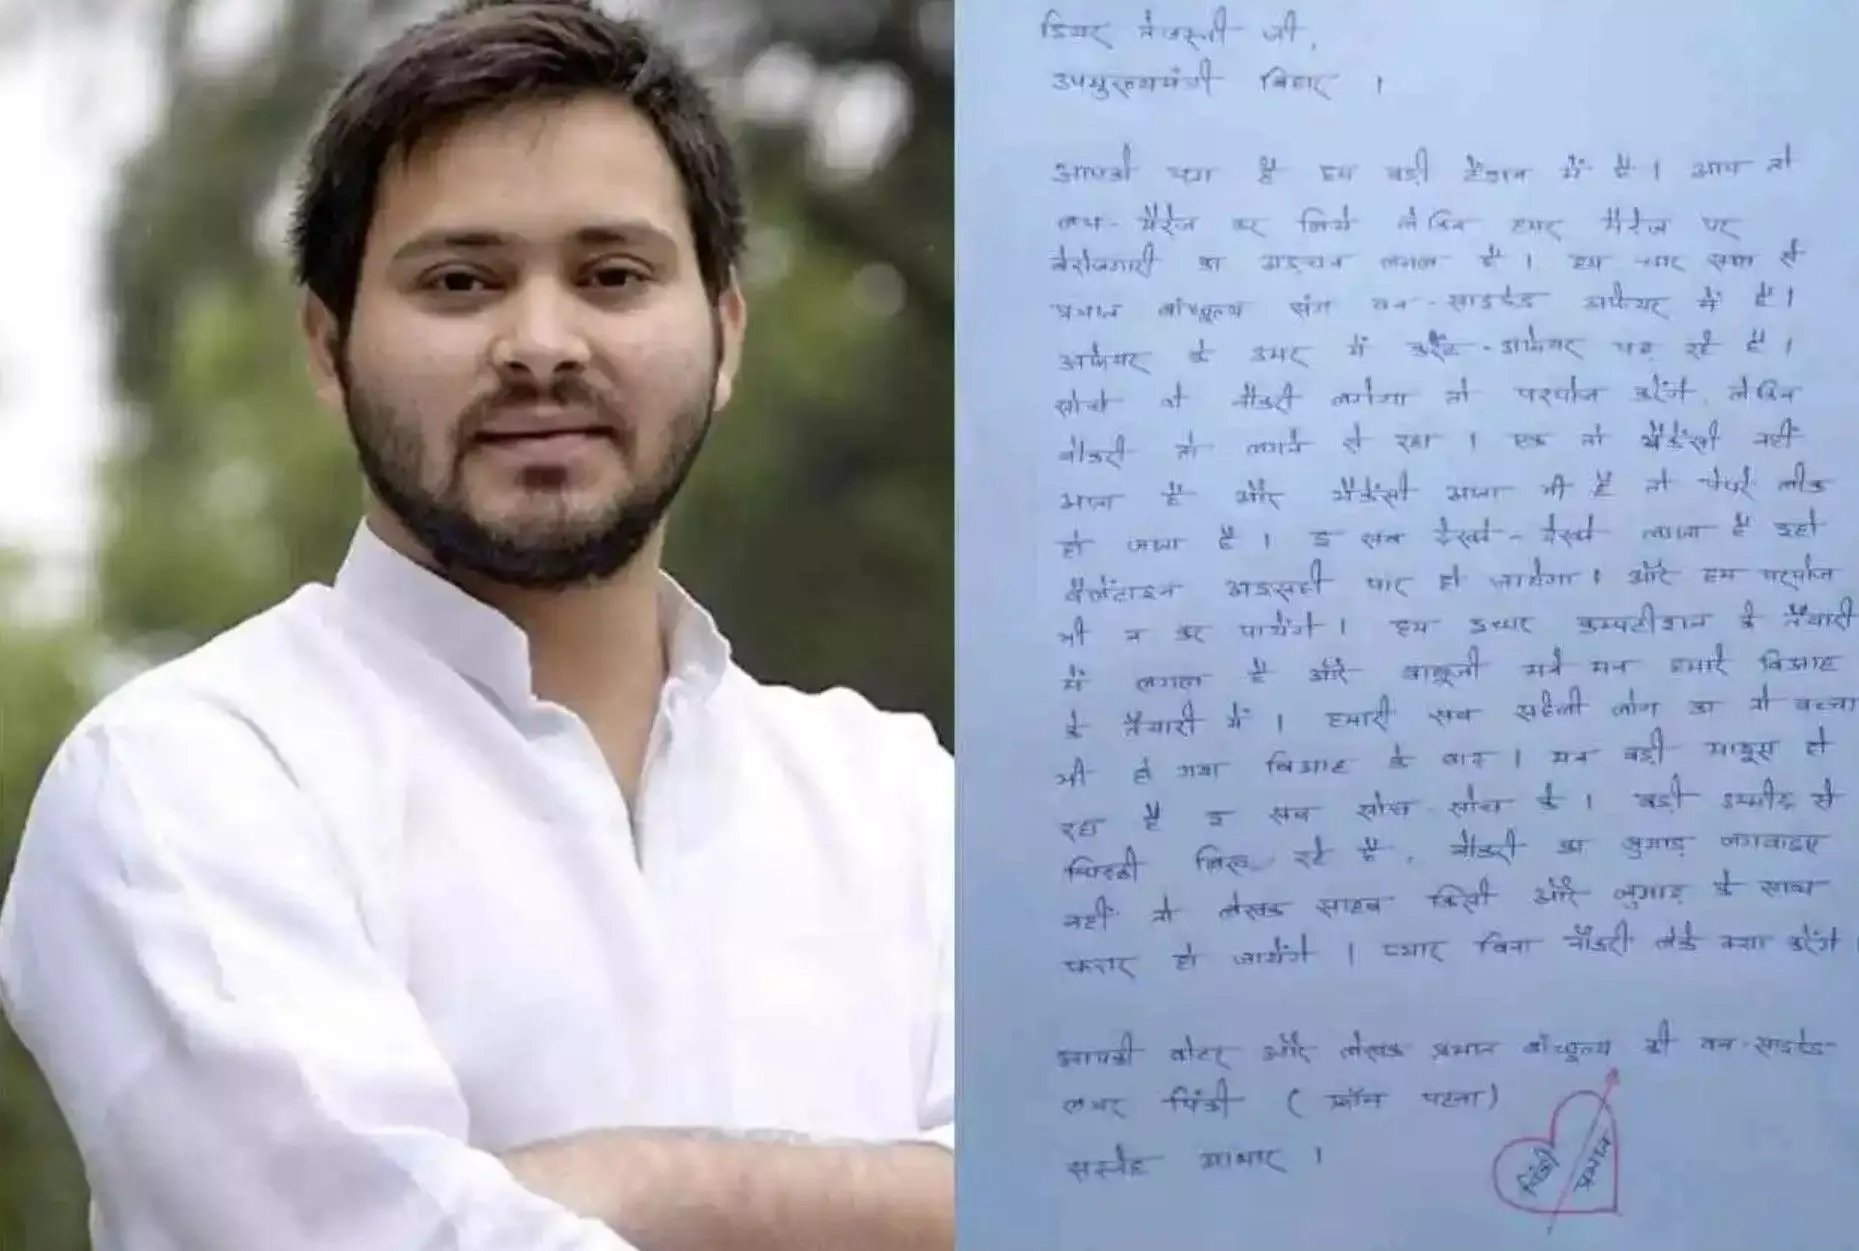 डियर तेजस्वी जी,
उपमुख्यमंत्री बिहार ।
आपको पता है हम बड़ी टेंशन में है । आप तो
लभ-मैरेज कर लिये लेकिन हमर मैरेज पर
बेरोजगारी का अड़चन लगल है । हम चार साल से
प्रभात बांधुल्य संग वन-साइडेड अफेयर में है ।
अफेयर के उमर में करेंट-अफेयर पढ़ रहे है ।
सोचे थे नौकरी लगेगा तो परपोज करेंगे, लेकिन
नौकरी तो लगने से रहा । एक तो भैकेंसी नहीं
आता है और भैकेंसी आता भी है तो पेपरे लीक
हो जाता है । इ सब देखते-देखते लगता है इहो
वैलेंटाइन अइसही पार हो जायेगा । और हम परपोज
भी न कर पायेंगे । हम इधर कम्पटीशन के तैयारी
में लगल है और बाबूजी मने मन हमारे बिआह
के तैयारी में । हमारी सब सहेली लोग का तो बच्चा
भी हो गया बिआह के बाद । मन बड़ी मायूस हो
रहा है इ सब सोच-सोच के । बड़ी उम्मीद से
चिट्ठी लिख रहे है, नौकरी का जुगाड़ लगवाइए
नहीं तो लेखक साहब किसी और जुगाड़ के साथ
फरार हो जायेंगे । प्यार बिना नौकरी लेके क्या करेंगे ।
आपकी वोटर और लेखक प्रभात बांधुल्य की वन-साइडेड
लभर पिंकी ( फ्रॉम पटना)
सस्नेह आभार ।
पिंकी
प्रभात